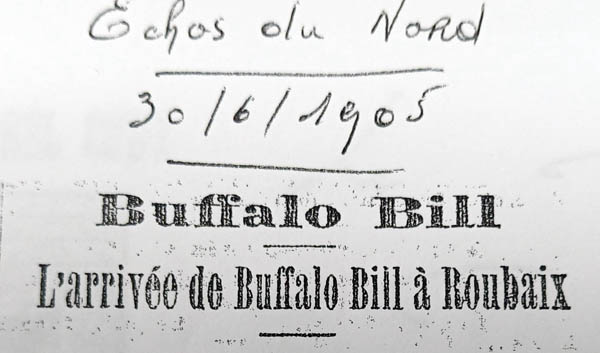 Echos du Nord
30/6/1905
Buffalo Bill
L'arrivée de Buffalo Bill à Roubaix